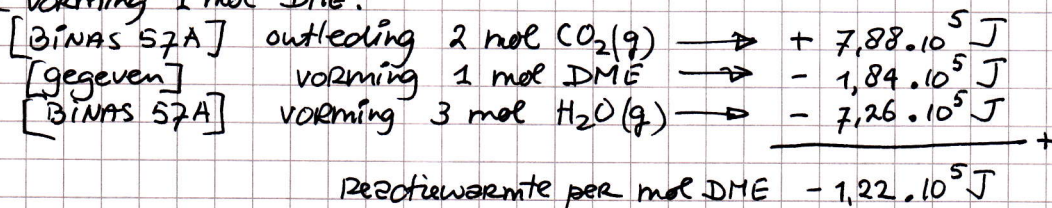 vorming 1 mol DME.
[BINAS 57A] ontleding 2 mol CO₂(g) → + 7,88.10⁵ J
[gegeven] vorming 1 mol DME → - 1,84.10⁵ J
[BINAS 57A] vorming 3 mol H₂O(g) → - 7,26.10⁵ J
+
Reactiewarmte per mol DME - 1,22.10⁵ J